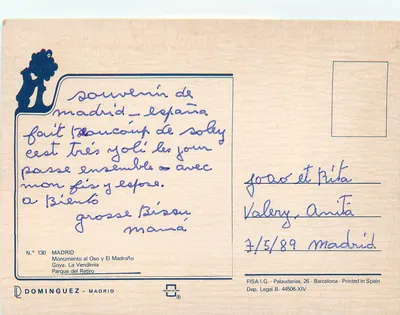 souvenir de
madrid - españa
fait Beaucoup de soley
cest trés yoli les jour
passe ensemble - avec
mon fis y espose.
a Biento
grosse Bisou
mamá
joao et Rita
Valery, Anita
7/5/89 madrid
N.º 130 MADRID
Monumento al Oso y El Madroño
Goya. La Vendimia
Parque del Retiro
DOMINGUEZ - MADRID
FISA I.G. - Palaudarias, 26 - Barcelona - Printed in Spain
Dep. Legal B. 44506-XIV